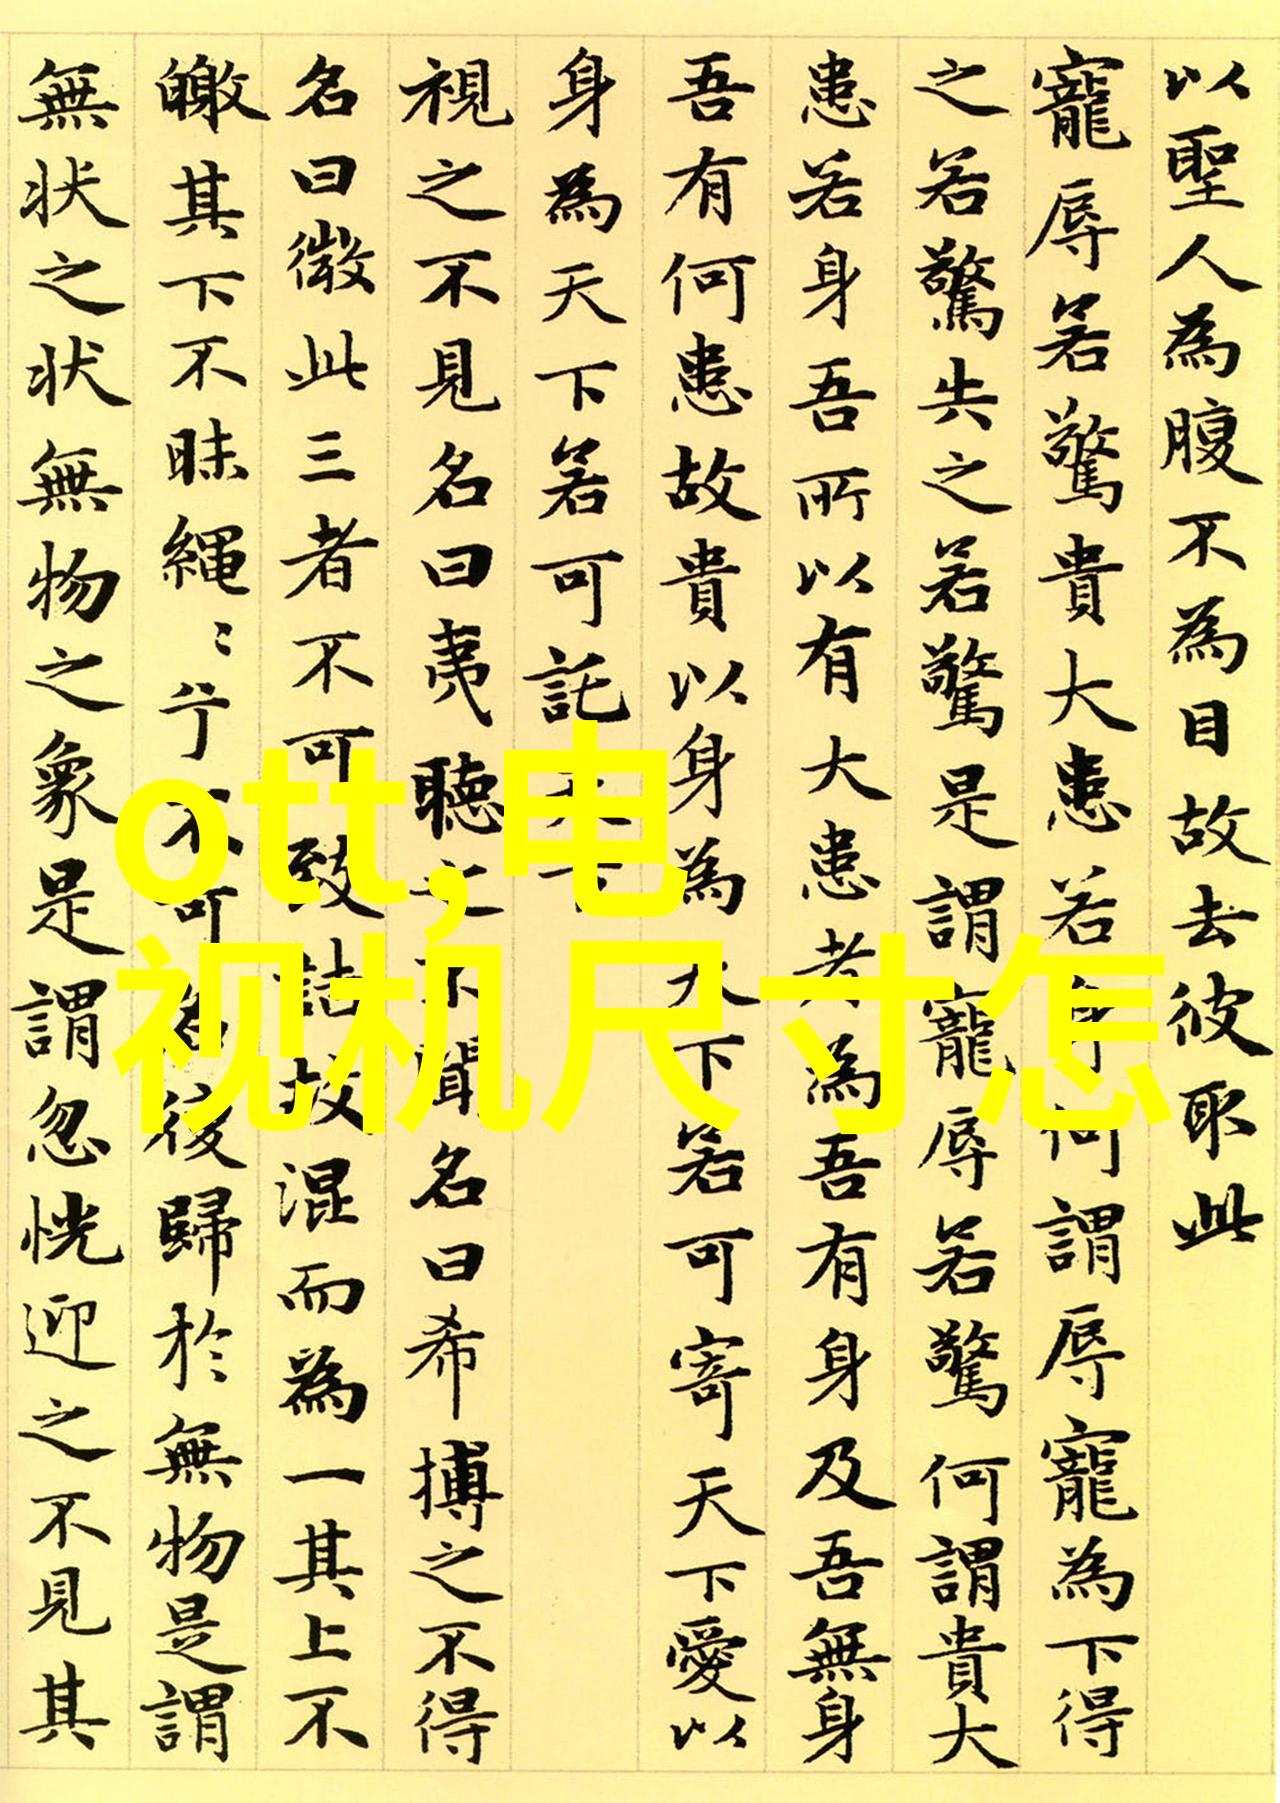 以聖人為腹不為目故去彼取此
寵辱若驚貴大患若身何謂辱寵為下得
之若驚失之若驚是謂寵辱若驚何謂貴大
患若身吾所以有大患者為吾有身及吾無身
吾有何患故貴以身為天下若可寄天下愛以
身為天下若可託天下
視之不見名曰夷聽之不聞名曰希搏之不得
名曰微此三者不可致詰故混而為一其上不
皦其下不昧繩〻兮不可名復歸於無物是謂
無状之状無物之象是謂忽恍迎之不見其
ott,电
视机尺寸怎